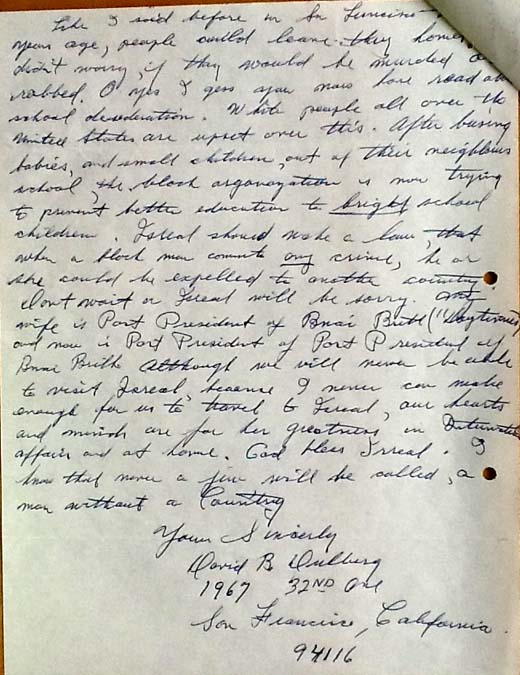 Like I said before in Sn Francisco
years ago, people could leave they home
didn't worry, if they would be murded or
robbed. O yes I gess you now have read ab
school desederation. White people all over the
United States are upset over this. After busing
babies, and small children, out of their neighbours
school, the black organazation is now trying
to prevent better education to bright school
children. Isreal should make a law, that
when a black man commits any crime, he or
she could be expelled to another country
Dont wait or Isreal will be sorry. My
wife is Past President of Bnai Brith
and now is Past President of Past President of
Bnai Brith Although we will never be able
to visit Isreal, because I never can make
enough for us to travel to Isreal, our hearts
and minds are for her greatness in
affair and at home. God bless Isreal. I
know that never a jew will be called, a
man without a Country
Yours Sincerly
David B. Dulberg
1967 32ND Ave
San Francisco, California.
94116